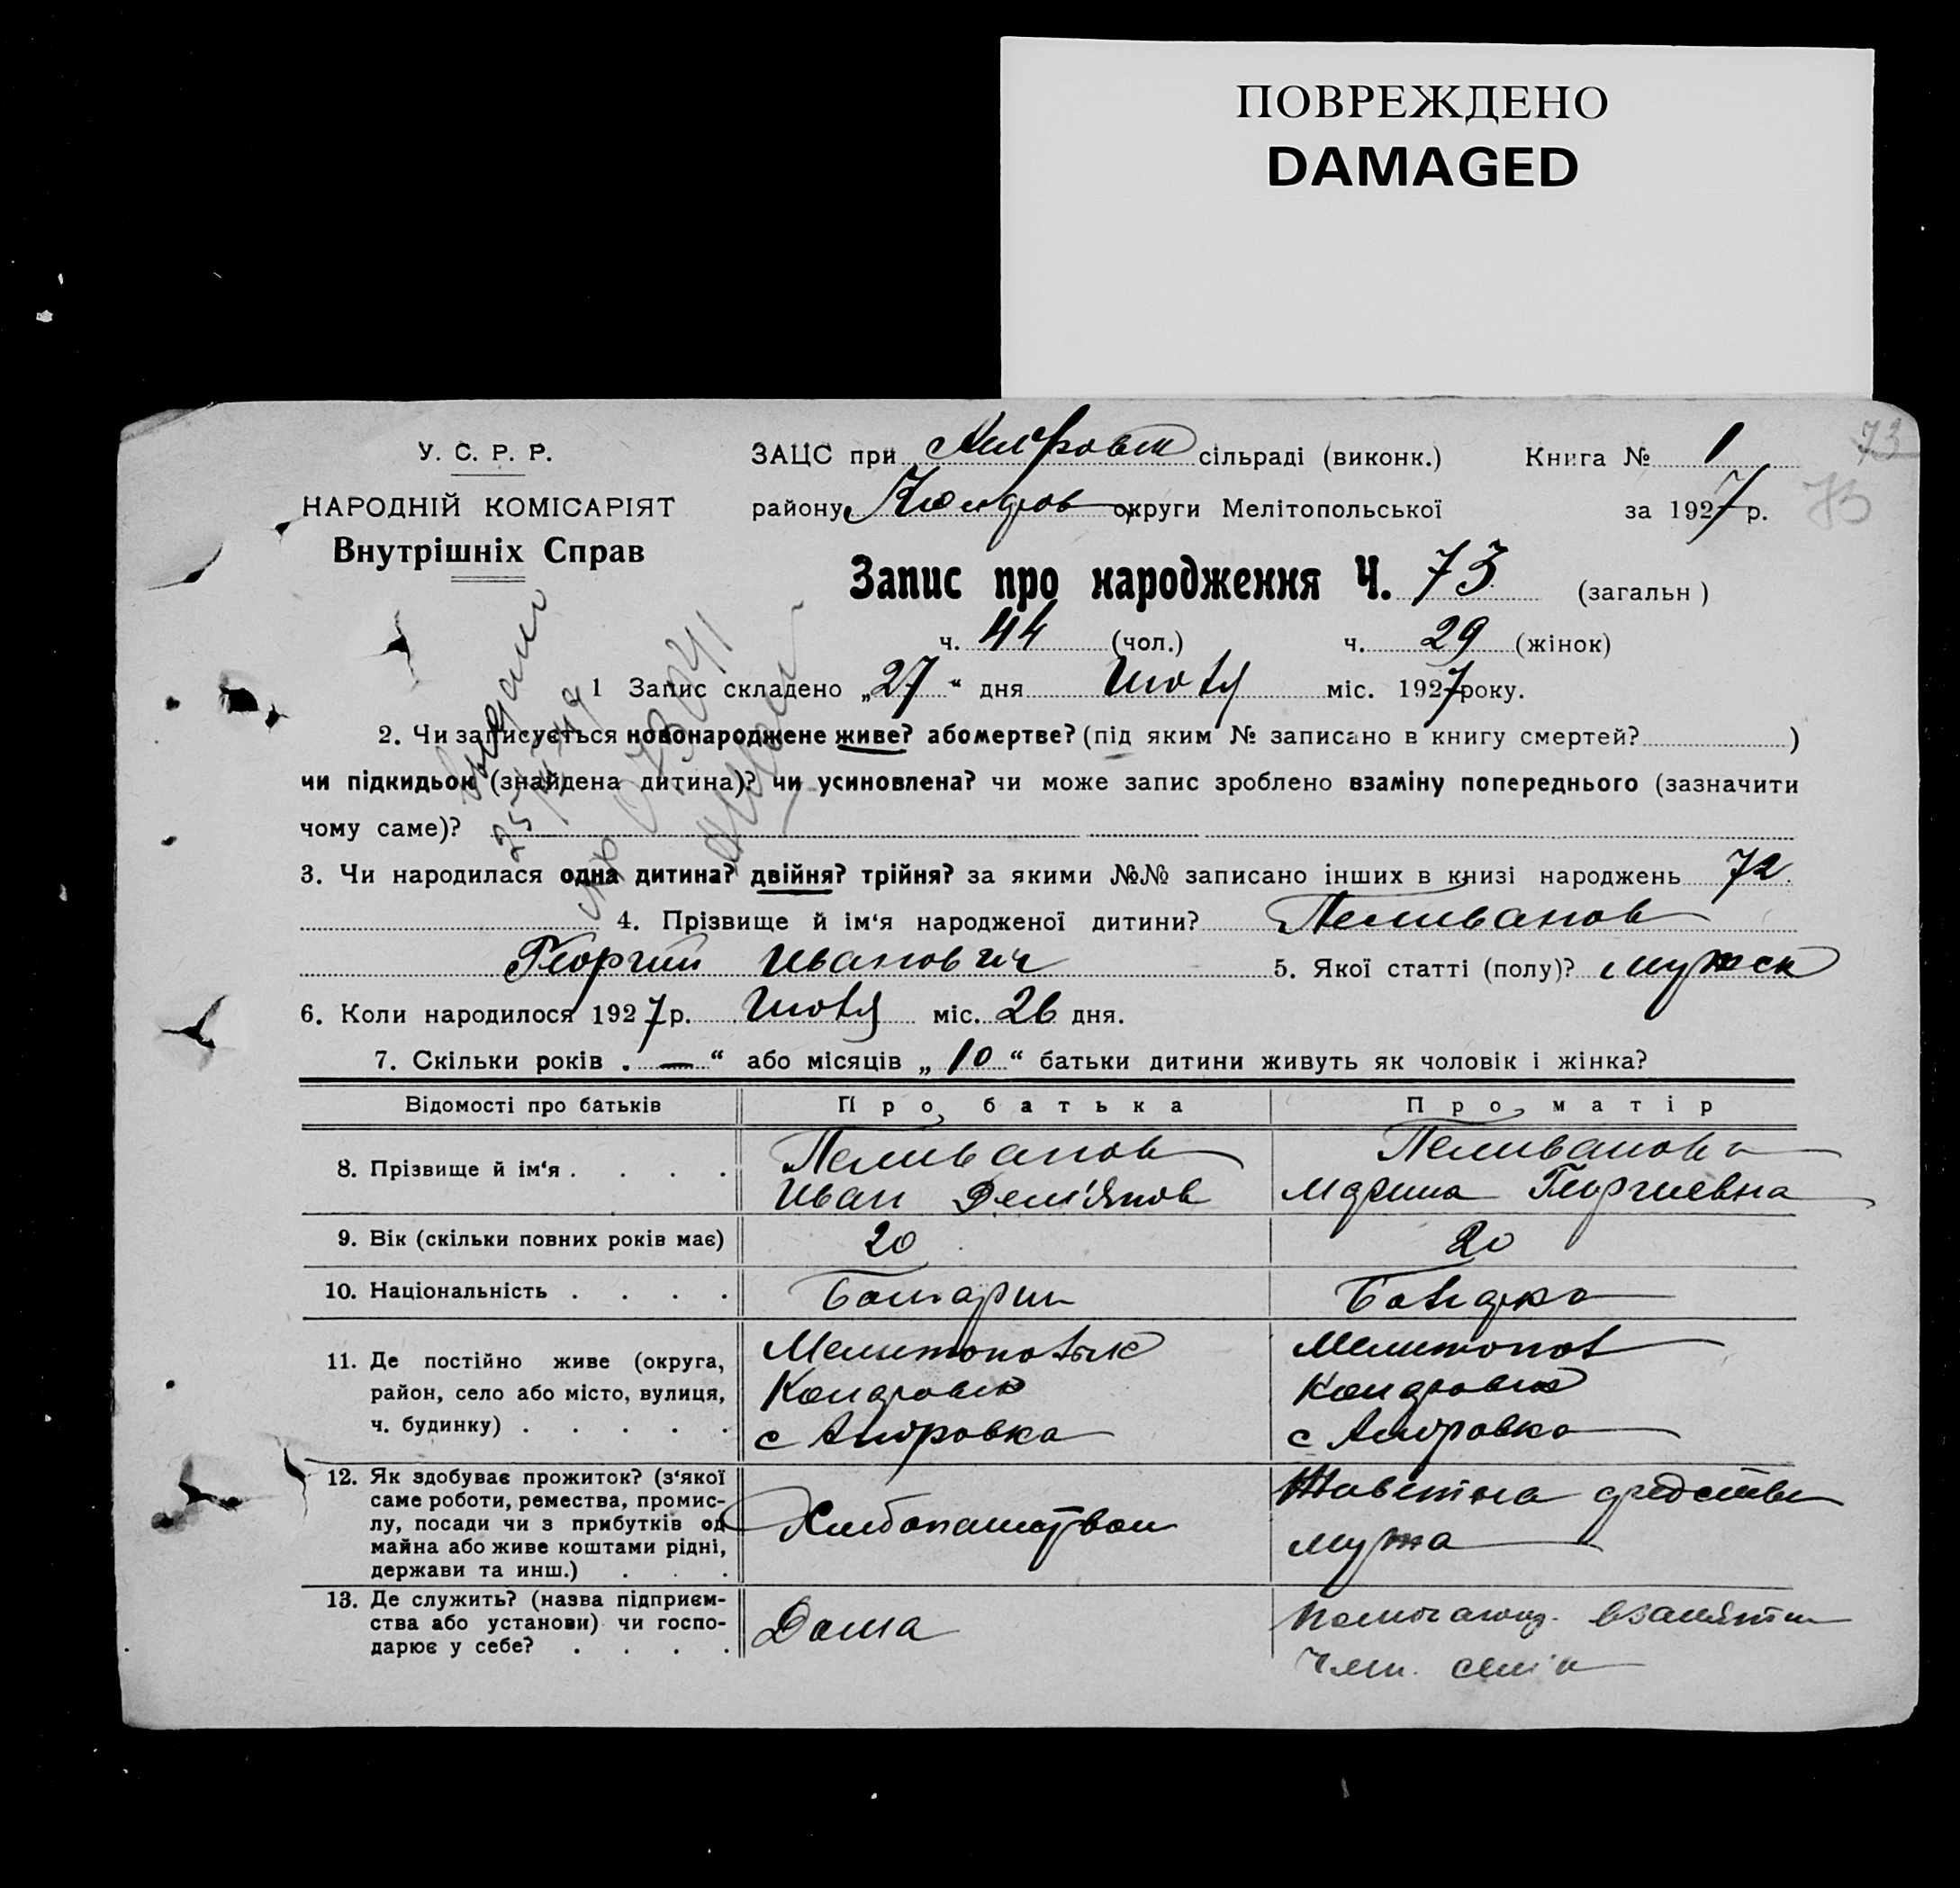 ПОВРЕЖДЕНО
DAMAGED
73
У. С. Р. Р.
НАРОДНІЙ КОМІСАРІЯТ
Внутрішніх Справ
ЗАЦС при сільраді (виконк.) Книга № 1
району округи Мелітопольської за 1927 р.
73
Запис про народження Ч. 73 (загальн)
ч. 44 (чол.) ч. 29 (жінок)
1 Запис складено „27“ дня Июля міс. 1927 року.
2. Чи записується новонароджене живе? або мертве? (під яким № записано в книгу смертей? )
чи підкидьок (знайдена дитина)? чи усиновлена? чи може запис зроблено взаміну попереднього (зазначити
чому саме)?
3. Чи народилася одна дитина? двійня? трійня? за якими №№ записано інших в книзі народжень 72
4. Прізвище й ім‘я народженої дитини? Пеливанов
Георгий Иванович 5. Якої статті (полу)? мужск
6. Коли народилося 1927 р. Июля міс. 26 дня.
7. Скільки років „—“ або місяців „10“ батьки дитини живуть як чоловік і жінка?
Відомості про батьків Про батька Про матір
8. Прізвище й ім‘я . . . . Пеливанов Пеливанова
Иван Марина Георгиевна
9. Вік (скільки повних років має) 20 20
10. Національність . . . . Болгарин Болгарка
11. Де постійно живе (округа, Мелитопольск Мелитопол
район, село або місто, вулиця, Кондровск Кондровск
ч. будинку) . . . . . с с
12. Як здобуває прожиток? (з‘якої
саме роботи, ремества, промис-
лу, посади чи з прибутків од
майна або живе коштами рідні,
держави та инш.) . . . Хлебопашеством на средства
мужа
13. Де служить? (назва підприєм-
ства або установи) чи госпо-
дарює у себе? . . . . Дома Помогающ. в занятии
член. семьи
выдано